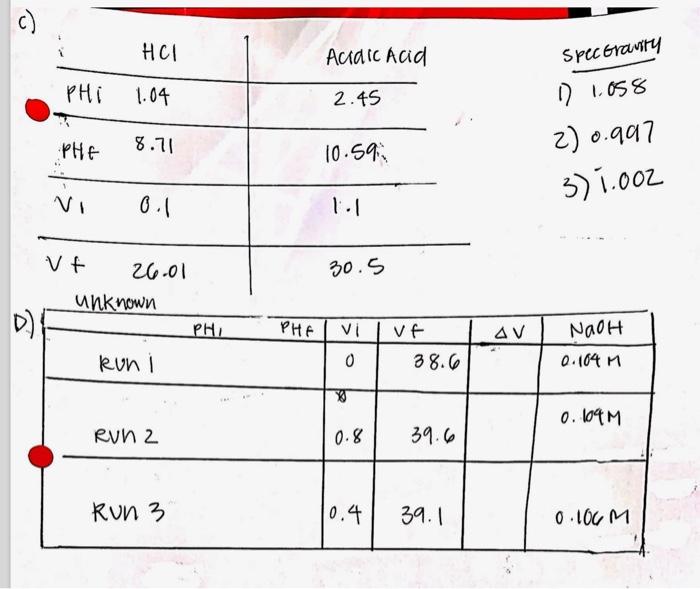 C)
HCl Acidic Acid Spec Gravity
PHi 1.04 2.45 1) 1.058
PHf 8.71 10.59 2) 0.997
Vi 0.1 1.1 3) 1.002
Vf 26.01 30.5
unknown
D.) PHi PHf Vi Vf ΔV NaOH
Run 1 0 38.6 0.104 M
Run 2 0.8 39.6 0.109 M
Run 3 0.4 39.1 0.106 M